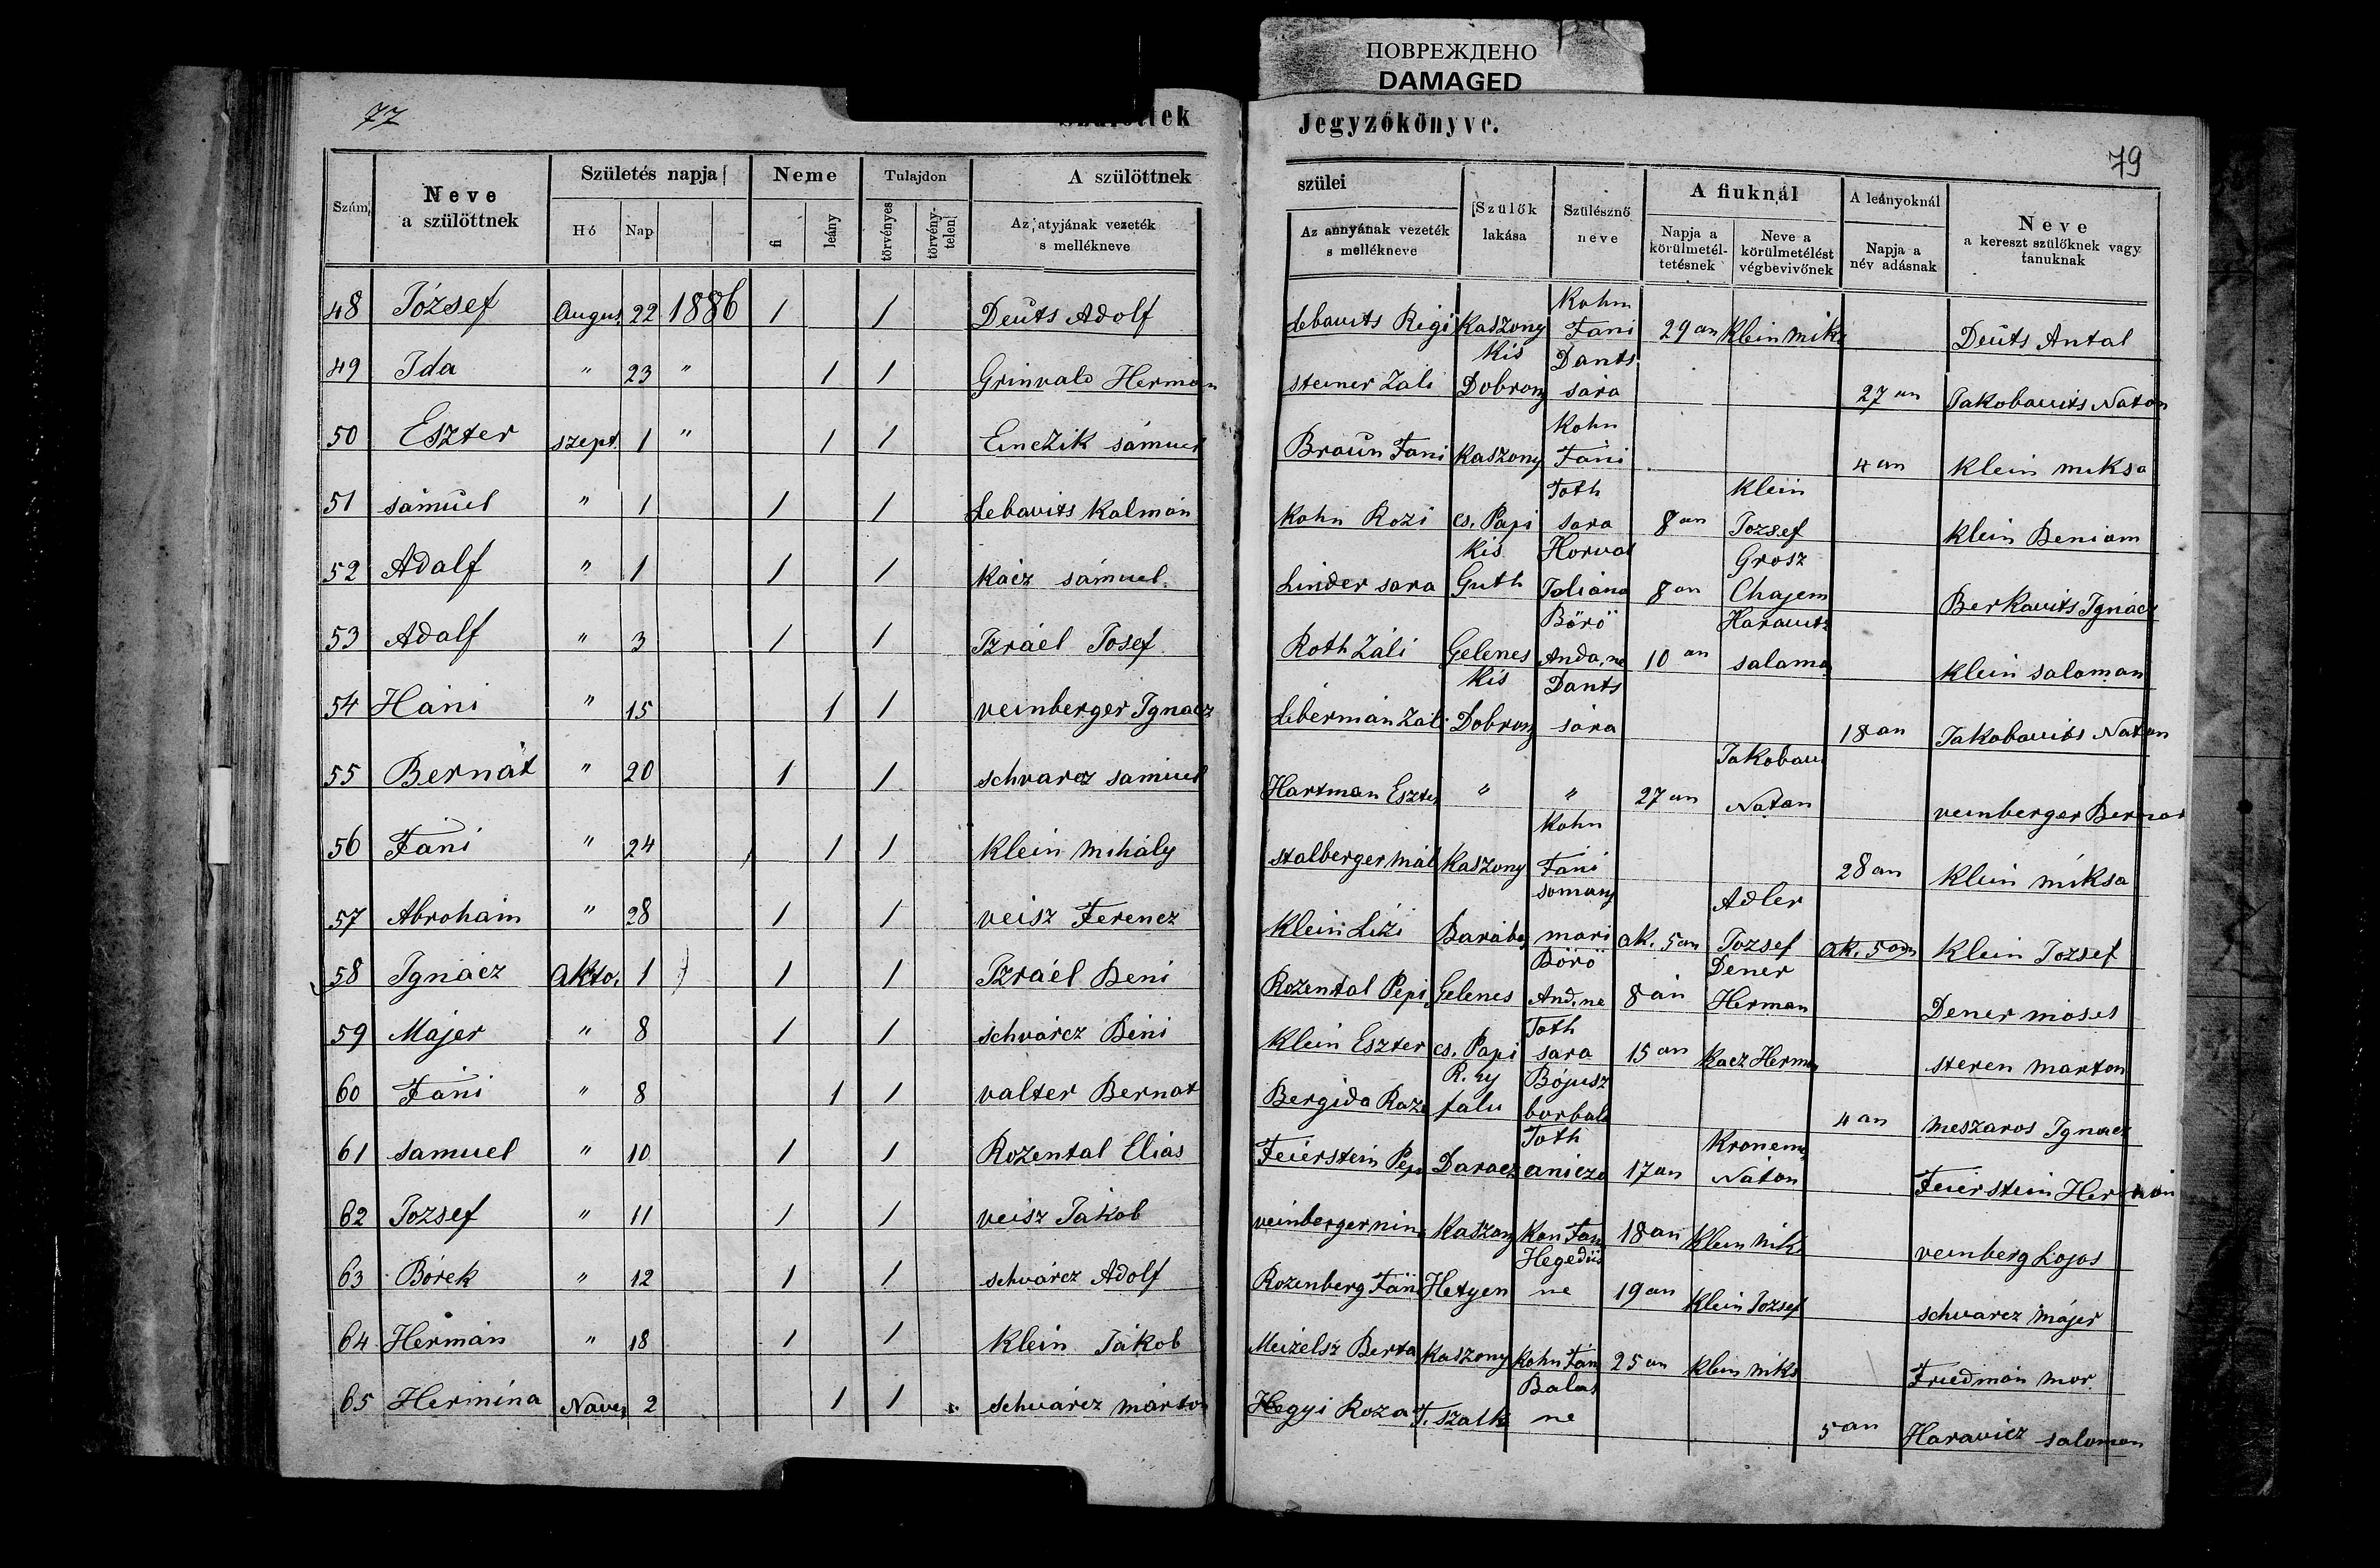 ПОВРЕЖДЕНО
DAMAGED
77
Jegyzőkönyve.
79
Szám. Neve a szülöttnek Születés napja Neme Tulajdon A szülöttnek
Hó Nap fi leány törvényes törvény-telen Az atyjának vezeték s mellékneve
szülei Szülők lakása Szülésznő neve A fiuknál A leányoknál Neve a kereszt szülőknek vagy tanuknak
Az annyának vezeték s mellékneve Napja a körülmetél-tetésnek Neve a körülmetélést végbevivőnek Napja a név adásnak
48 József Augus. 22 1886 1 1 Deuts Adolf Lebavits Regi Kaszony Kohn Fani 29 an Klein Miks Deuts Antal
49 Ida " 23 " 1 1 Grinvald Herman Steiner Záli Kis Dobrony Dants sára 27 an Jakobavits Natan
50 Eszter szept. 1 " 1 1 Einczik sámuel Braun Fani Kaszony Kohn Fáni 4 an Klein miksa
51 sámuel " 1 1 1 Lebavits Kalmán Kohn Rozi cs. Papi Toth sara 8 an Klein Jozsef Klein Beniam
52 Adalf " 1 1 1 Kácz sámuel. Linder sara Kis Guth Horvat Juliána 8 an Grosz Chajem Berkavits Ignácz
53 Adalf " 3 1 1 Izráel Josef Roth Záli Gelenes Börö Anda, ne 10 an Haravits salamo Klein salaman
54 Háni " 15 1 1 veinberger Ignacz Libermán Záli Kis Dobrony Dants sára 18 an Jakabavits Natan
55 Bernát " 20 1 1 schvarcz samuel Hartman Eszter " " 27 an Jakobavi Natan veinberger Bernat
56 Fáni " 24 1 1 Klein mihály stalberger mál Kaszony Kohn Fáni 28 an Klein miksa
57 Abrohám " 28 1 1 veisz Ferencz Klein Lizi Barába somany mari ok. 5 an Adler Jozsef ok. 5 an Klein Jozsef
58 Ignácz Akto. 1 1 1 Izráel Beni Rozental Pepi Gelenes Börö And. ne 8 án Dener Herman Dener móses
59 Májer " 8 1 1 schvárcz Beni Klein Eszter cs. Papi Toth sara 15 an Kacz Herman steren marton
60 Fáni " 8 1 1 valter Bernat Bergida Roza R. hy falu Bójusz borbala 4 an meszaros Ignacz
61 samuel " 10 1 1 Rozental Eliás Feierstein Pepi Daracz Toth anicza 17 an Kronem Natan Feierstein Herman
62 Jozsef " 11 1 1 veisz Jákob veinberger nin Kaszony Kon Fan 18 an Klein Miks veinberg Lajos
63 Bórek " 12 1 1 schvárcz Adolf Rozenberg Fáni Hetyen Hegedüs ne 19 an Klein Jozsef schvarcz májer
64 Hermán " 18 1 1 Klein Jákob Meizelsz Berta Kaszony Kohn Fan 25 an Klein miks Friedmán mor.
65 Hermina Nove 2 1 1 schvárcz márton Hegyi Roza T. szalk Balas ne 5 an Haravicz salomon